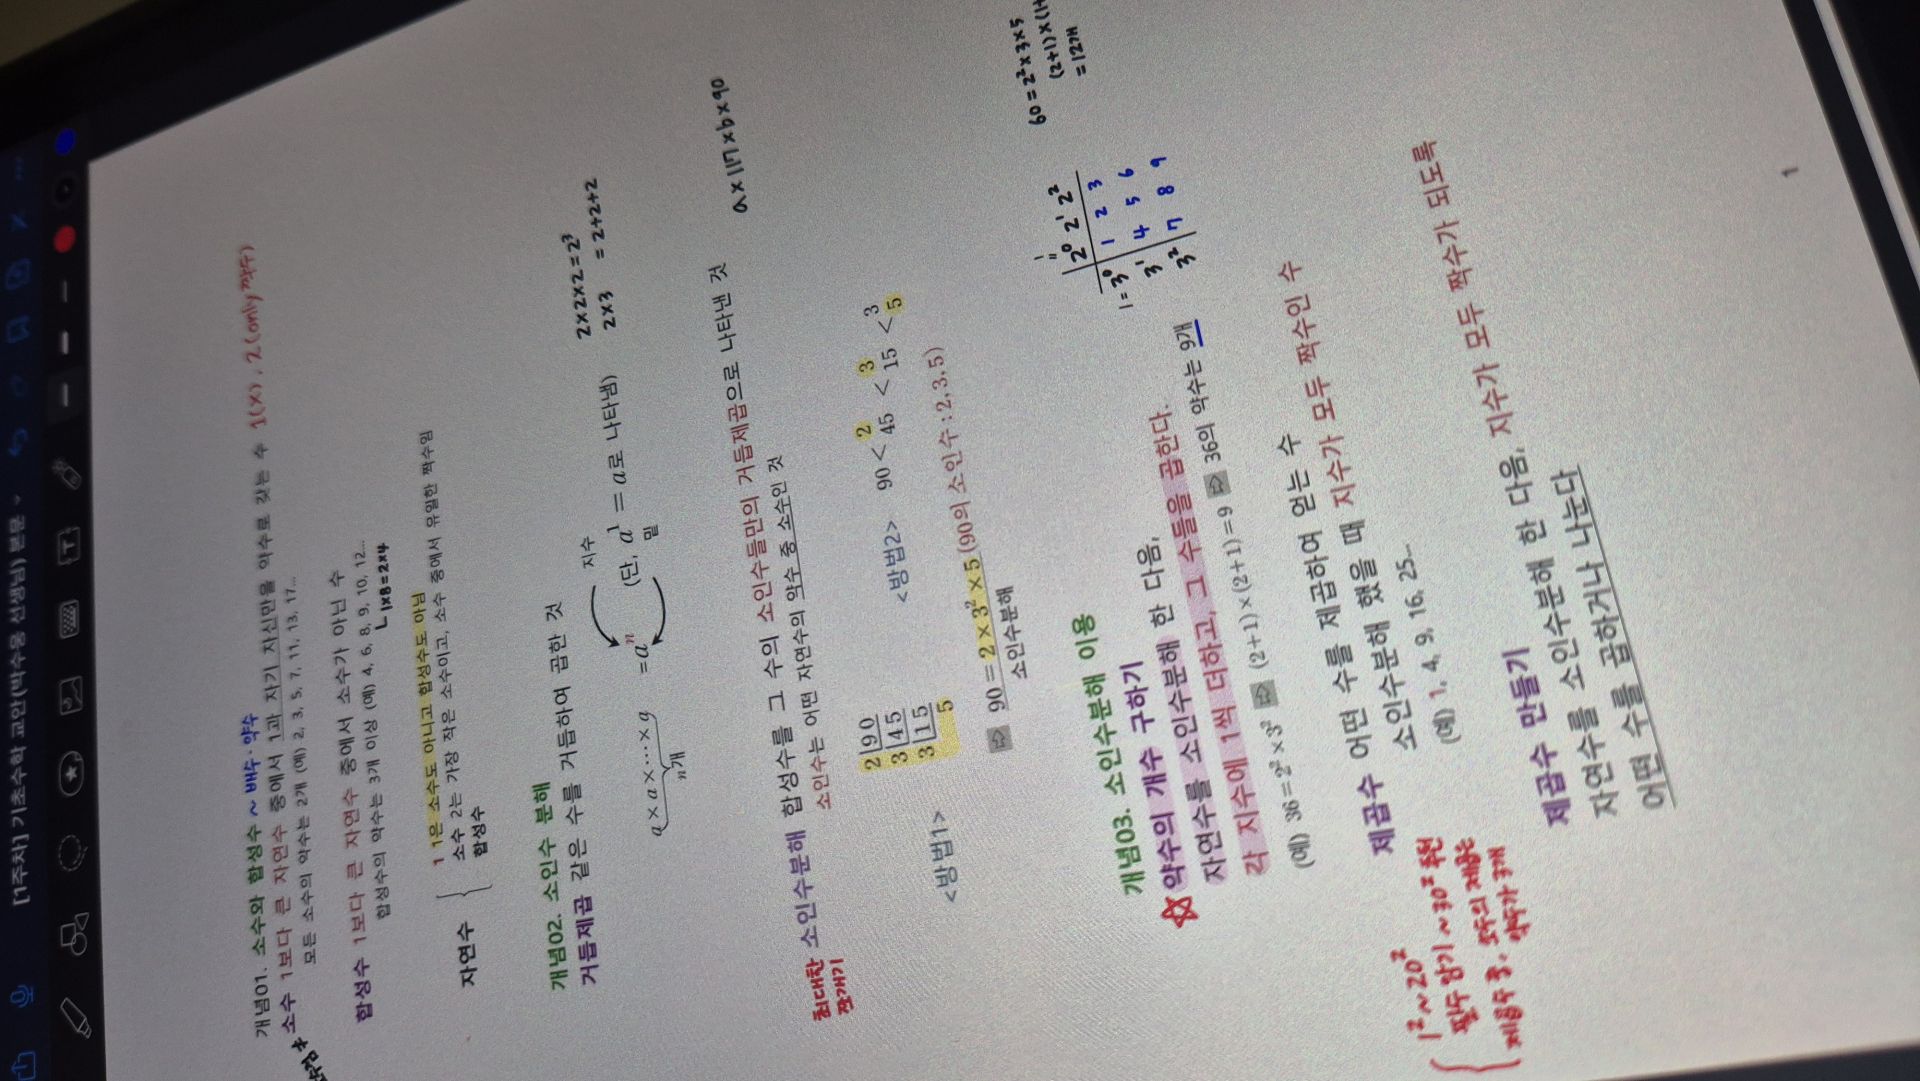 [1주차] 기초수학 교안(박수응 선생님) 본문
개념01. 소수와 합성수 ~ 배수·약수
소수 1보다 큰 자연수 중에서 1과 자기 자신만을 약수로 갖는 수 1(X), 2(only짝수)
모든 소수의 약수는 2개 (예) 2, 3, 5, 7, 11, 13, 17...
합성수 1보다 큰 자연수 중에서 소수가 아닌 수
합성수의 약수는 3개 이상 (예) 4, 6, 8, 9, 10, 12...
1×8=2×4
1 1은 소수도 아니고 합성수도 아님
자연수 { 소수 2는 가장 작은 소수이고, 소수 중에서 유일한 짝수임
합성수
개념02. 소인수 분해
거듭제곱 같은 수를 거듭하여 곱한 것
2×2×2=2³
2×3 =2+2+2
지수
a×a×…×a =aⁿ (단, a¹=a로 나타냄)
n개
밑
a×117×b×90
소인수분해 합성수를 그 수의 소인수들만의 거듭제곱으로 나타낸 것
소인수는 어떤 자연수의 약수 중 소수인 것
최대한
쪼개기
<방법1>
2 90
3 45
3 15
5
<방법2>
90 < 2
45 < 3
15 < 3
5
⇨ 90=2×3²×5 (90의 소인수:2,3,5)
소인수분해
개념03. 소인수분해 이용
☆ 약수의 개수 구하기
자연수를 소인수분해 한 다음,
각 지수에 1씩 더하고, 그 수들을 곱한다.
(예) 36=2²×3² ⇨ (2+1)×(2+1)=9 ⇨ 36의 약수는 9개
1
2⁰ 2¹ 2²
1=3⁰ 1 2 3
3¹ 4 5 6
3² 7 8 9
60=2²×3×5
(2+1)×(1+
=12개
제곱수 어떤 수를 제곱하여 얻는 수
소인수분해 했을 때 지수가 모두 짝수인 수
(예) 1, 4, 9, 16, 25...
1²~20²
필수 암기 ~30² 추천
제곱수 중, 소수의 제곱은
약수가 3개
제곱수 만들기
자연수를 소인수분해 한 다음, 지수가 모두 짝수가 되도록
어떤 수를 곱하거나 나눈다
1